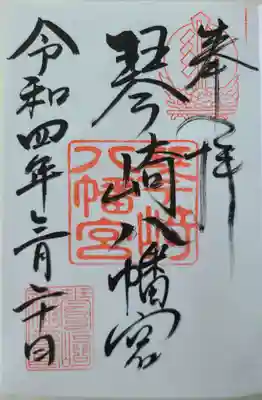 奉拝
琴崎八幡宮
琴崎八幡宮
令和四年三月二十日